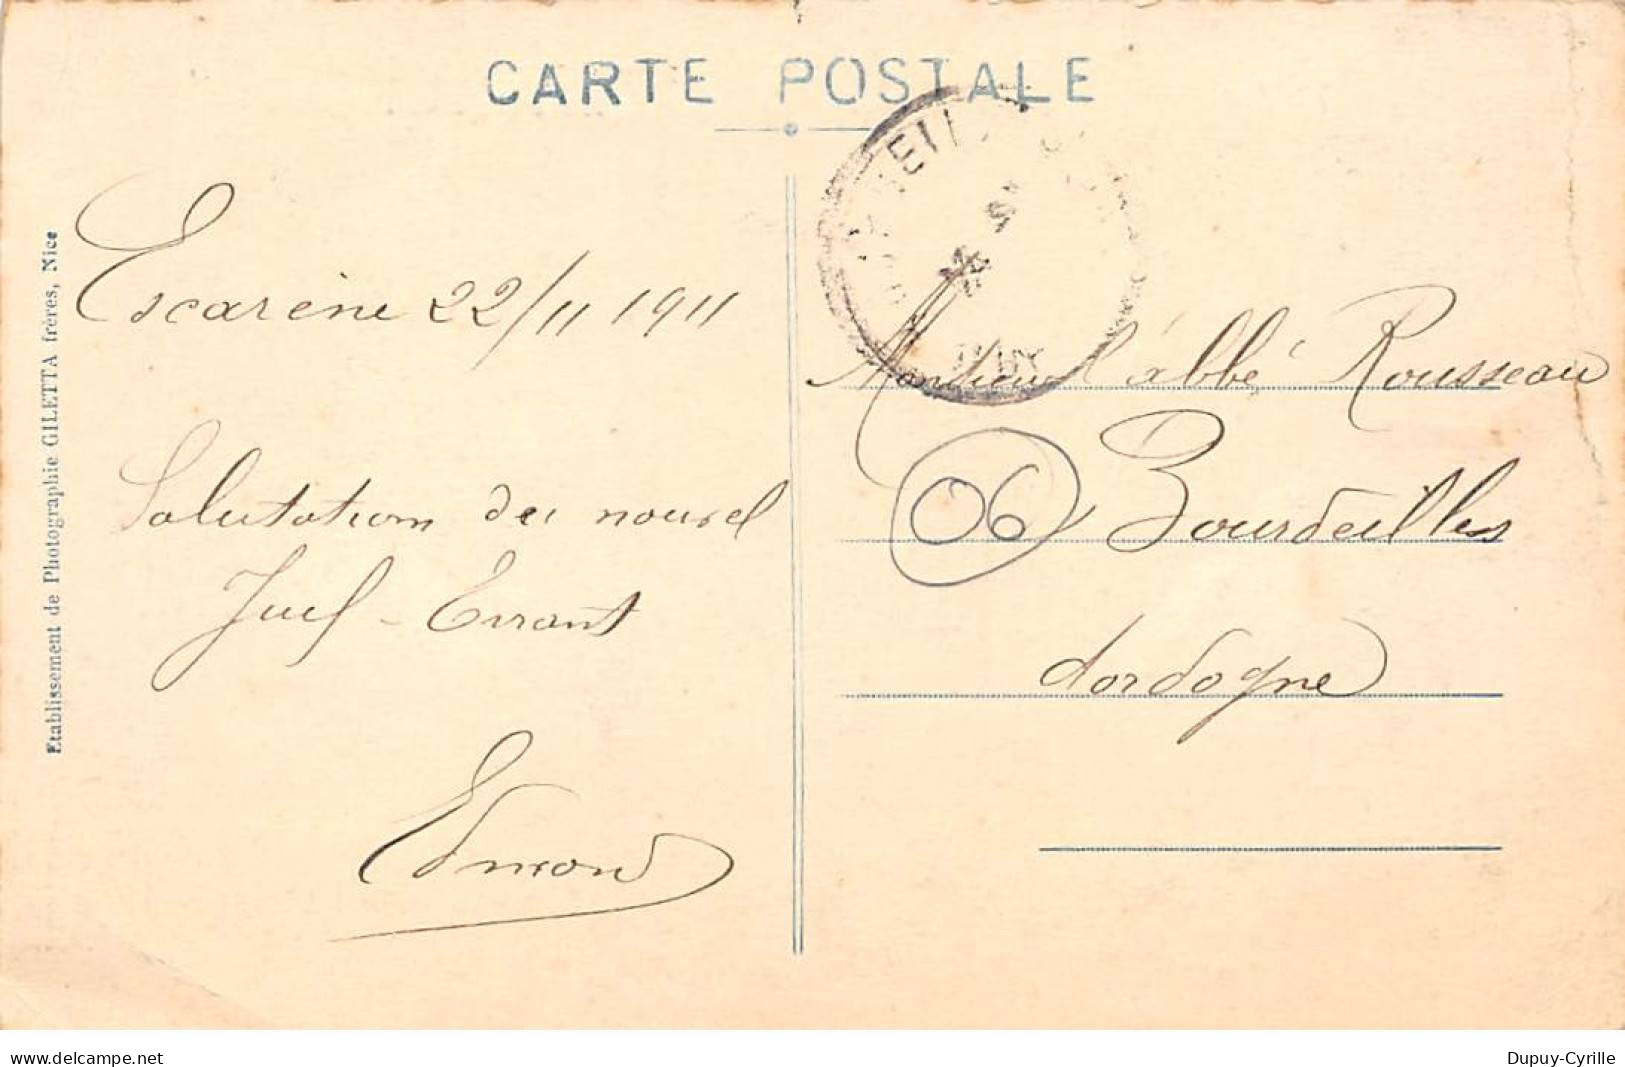 CARTE POSTALE
Escarène 22/11 1911
Salutation du nouvel
Juif-Errant
Edmond
Monsieur l'abbé Rousseau
06 Bourdeilles
dordogne
Etablissement de Photographie GILETTA frères, Nice
www.delcampe.net
Dupuy-Cyrille